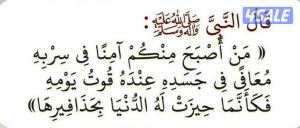 4SALE
قَالَ النَّبِيُّ ﷺ:
« مَنْ أَصْبَحَ مِنْكُمْ آمِنًا فِي سِرْبِهِ
مُعَافًى فِي جَسَدِهِ عِنْدَهُ قُوتُ يَوْمِهِ
فَكَأَنَّمَا حِيزَتْ لَهُ الدُّنْيَا بِحَذَافِيرِهَا»